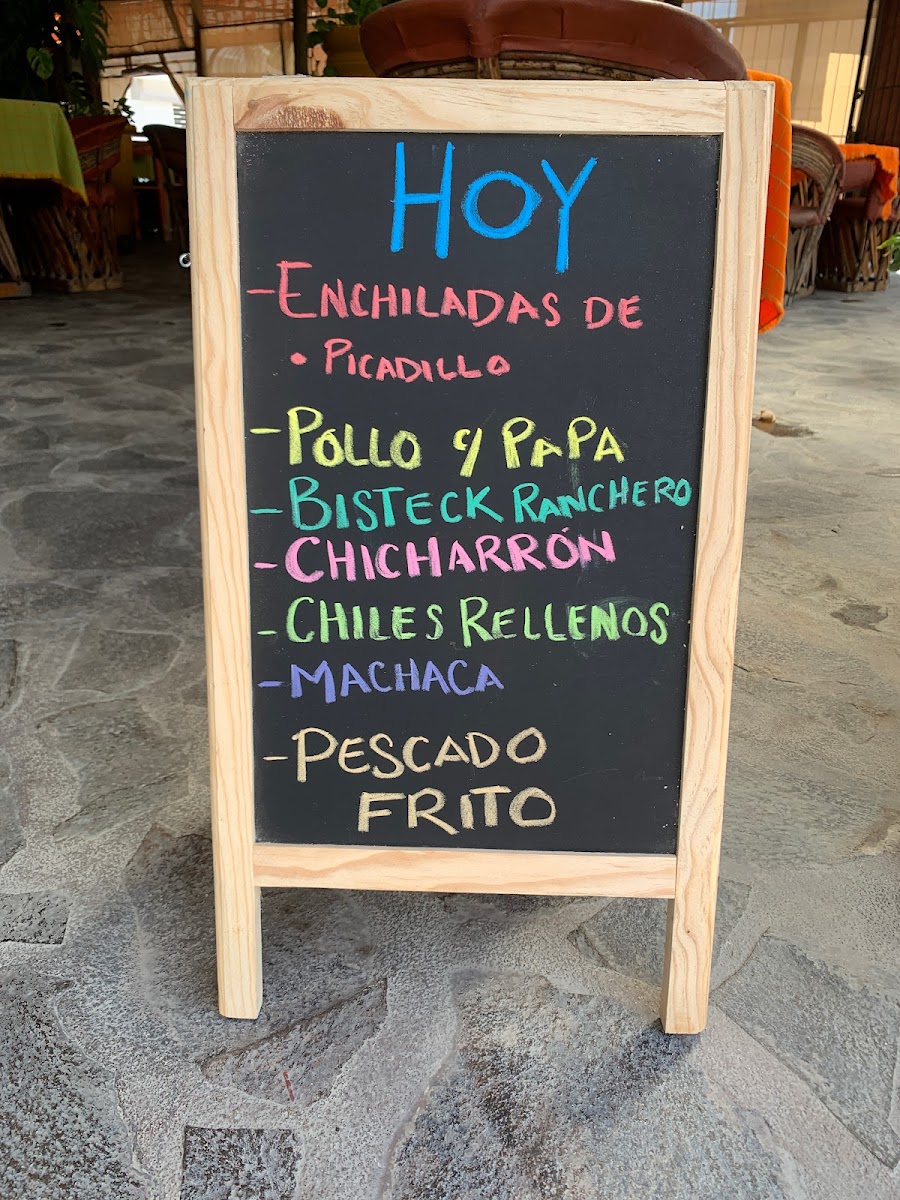 HOY
- ENCHILADAS DE
• PICADILLO
- POLLO Y PAPA
- BISTECK RANCHERO
- CHICHARRÓN
- CHILES RELLENOS
- MACHACA
- PESCADO
FRITO